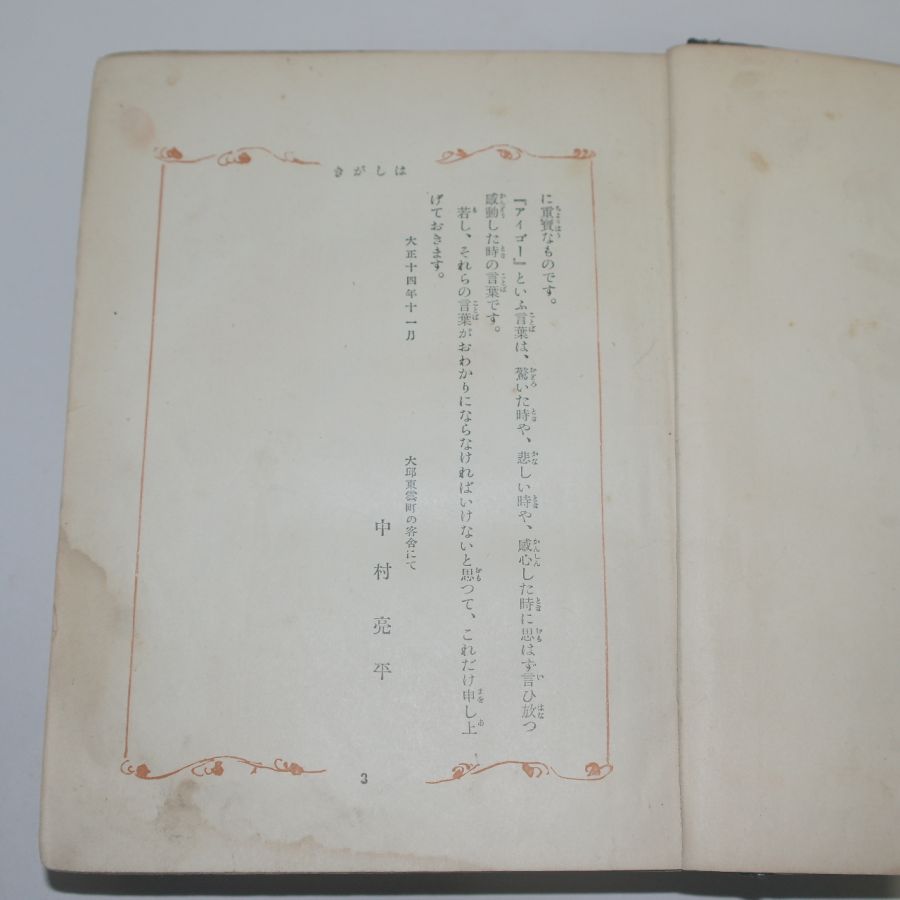 はしがき
に重寶なものです。
『アイゴー』といふ言葉は、驚いた時や、悲しい時や、感心した時に思はず言ひ放つ
感動した時の言葉です。
若し、それらの言葉がおわかりにならなければいけないと思つて、これだけ申し上
げておきます。
大正十四年十一月
大邱東雲町の客舍にて
中村亮平
3